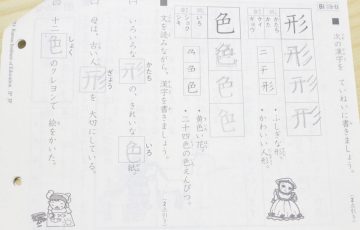 次の漢字を ていねいに書きましょう。
形
かたち
ギョウ
形形形
二 チ 形
・ふしぎな形
・かわいい人形
色
いろ
ショク
シキ
色色色
・黄色い花
・二十四色の色えんぴつ
文を読みながら、漢字を書きましょう。
いろいろな形の、きれいな色紙。
かたち
いろ
母は、古い人形を 大切にしている。
ぎょう
十二色のクレヨンで 絵をかいた。
しょく